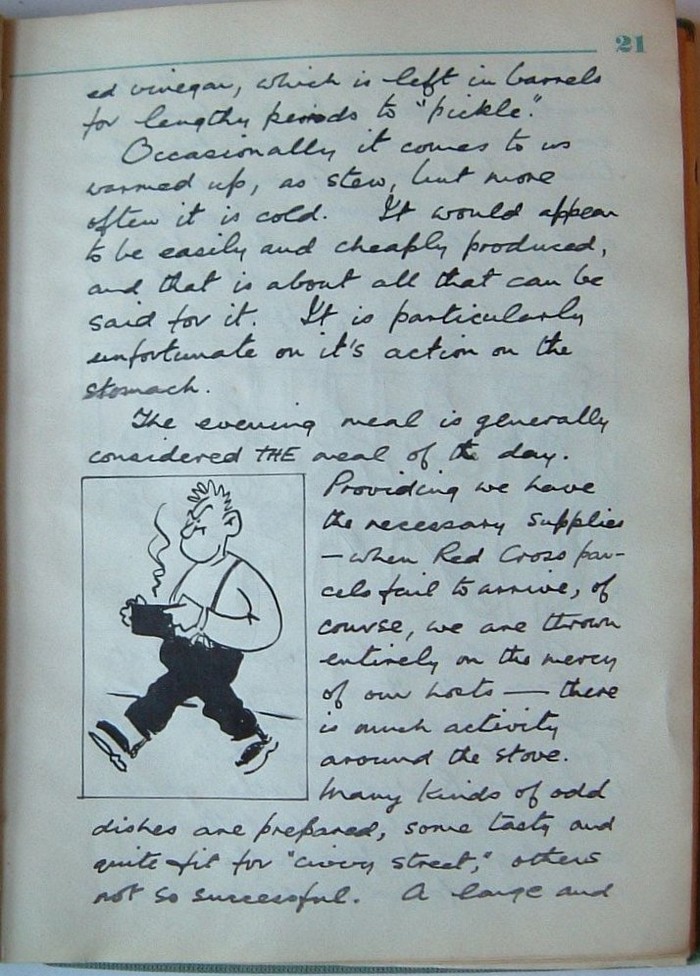 21
ed vinegar, which is left in barrels
for lengthy periods to "pickle".
Occasionally it comes to us
warmed up, as stew, but more
often it is cold. It would appear
to be easily and cheaply produced,
and that is about all that can be
said for it. It is particularly
unfortunate on it's action on the
stomach.
The evening meal is generally
considered THE meal of the day.
Providing we have
the necessary supplies
— when Red Cross par-
cels fail to arrive, of
course, we are thrown
entirely on the mercy
of our hosts — there
is much activity
around the stove.
Many kinds of odd
dishes are prepared, some tasty and
quite fit for "civvy street," others
not so successful. A large and